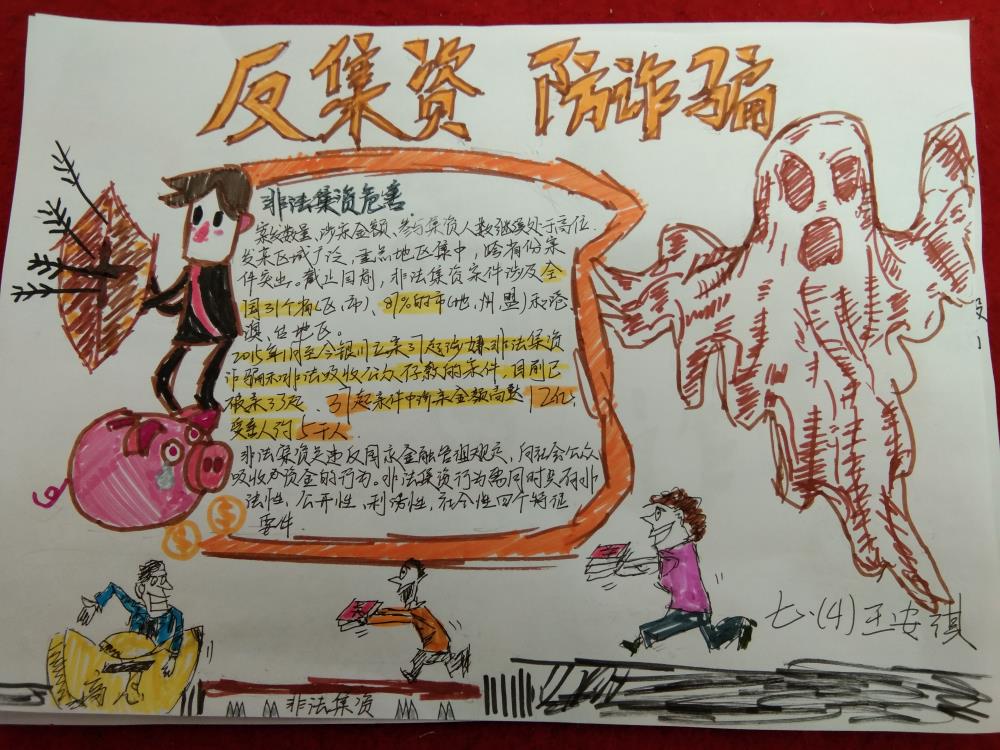 反集资 防诈骗
非法集资危害
案发数量、涉案金额、参与集资人数继续处于高位.
发案区域广泛,重点地区集中,跨省份案
件突出。截止目前,非法集资案件涉及全
国31个省(区、市)、81%的市(地、州、盟)和港
澳、台地区。
2015年1月至今银川立案37起涉嫌非法集资
诈骗和非法吸收公众存款的案件,目前已
破案33起、37起案件中涉案金额高达12亿,
受害人约5千人.
非法集资是违反国家金融管理规定,向社会公众
吸收资金的行为。非法集资行为需同时具有非
法性,公开性,利诱性,社会性四个特征
要件.
七、(4)王安琪
高息
非法集资